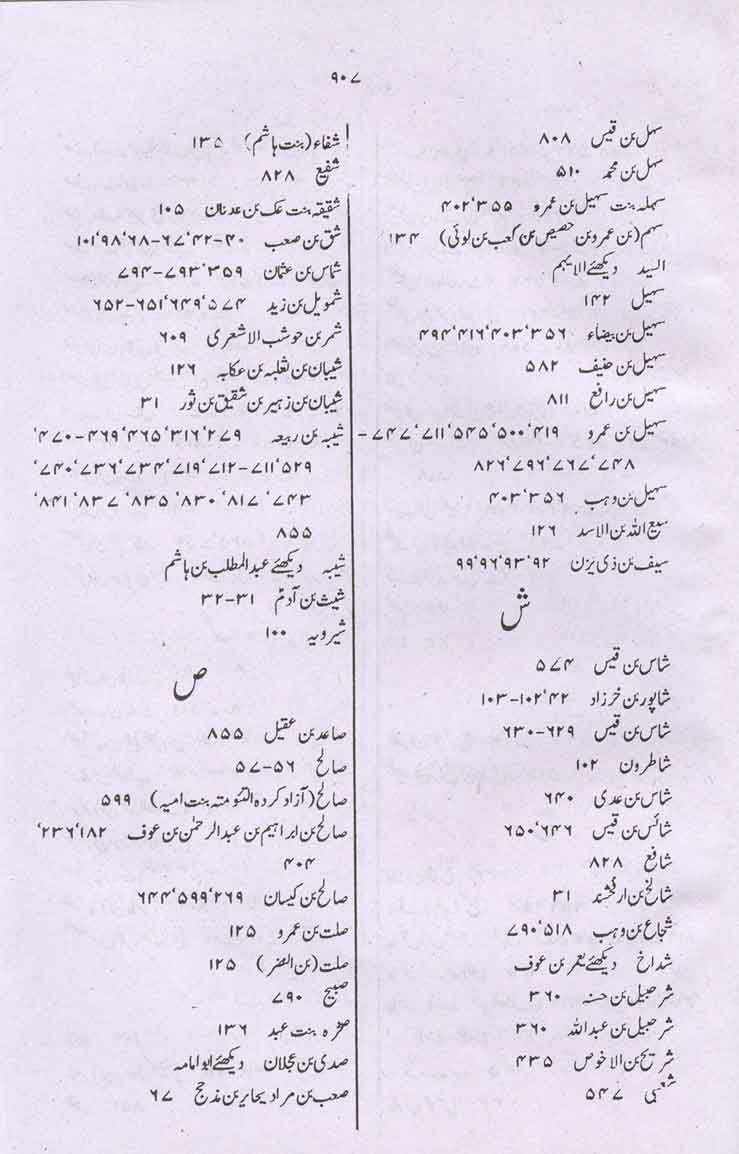 ۹۰۷
سہل بن قیس ۸۰۸
سہل بن محمد ۵۱۰
سہلہ بنت سہیل بن عمرو ۳۵۵‘۴۰۲
سہم (بن عمرو بن حصیص بن کعب بن لوئی) ۱۳۴
السید دیکھئے الایہم
سہیل ۱۴۲
سہیل بن بیضاء ۳۵۶‘۴۰۳‘۴۱۶‘۴۹۴
سہیل بن حنیف ۵۸۲
سہیل بن رافع ۸۱۱
سہیل بن عمرو ۴۱۹‘۵۰۰‘۵۴۵‘۷۱۱‘۷۴۷-
۷۴۸‘۷۶۷‘۷۹۶‘۸۲۶
سہیل بن وہب ۳۵۶‘۴۰۳
سیع اللہ بن الاسد ۱۲۶
سیف بن ذی یزن ۹۲‘۹۳‘۹۶‘۹۹
ش
شاس بن قیس ۵۷۴
شاپور بن خرزاد ۴۲‘۱۰۲-۱۰۳
شاس بن قیس ۶۲۹-۶۳۰
شاطرون ۱۰۲
شاس بن عدی ۶۴۰
شائس بن قیس ۶۴۶‘۶۵۰
شافع ۸۲۸
شالخ بن ارفخشد ۳۱
شجاع بن وہب ۵۱۸‘۷۹۰
شداخ دیکھئے یعمر بن عوف
شرحبیل بن حسنہ ۳۶۰
شرحبیل بن عبداللہ ۳۶۰
شریح بن الاخوص ۴۳۵
شعبی ۵۴۷
شفاء (بنت ہاشم) ۱۳۵
شفیع ۸۲۸
شقیقہ بنت عک بن عدنان ۱۰۵
شق بن صعب ۴۰-۴۲‘۶۷-۶۸‘۹۸‘۱۰۱
شماس بن عثمان ۳۵۹‘۷۹۳-۷۹۴
شمویل بن زید ۵۷۴‘۶۴۹‘۶۵۱-۶۵۲
شمر بن حوشب الاشعری ۶۰۹
شیبان بن ثعلبہ بن عکابہ ۱۲۶
شیبان بن زہیر بن شقیق بن ثور ۳۱
شیبہ بن ربیعہ ۲۷۹‘۳۱۶‘۴۶۵‘۴۶۹-۴۷۰‘
۵۲۹‘۷۱۱-۷۱۲‘۷۱۹‘۷۳۴‘۷۳۶‘۷۴۰‘
۷۴۳‘۸۱۷‘۸۳۰‘۸۳۵‘۸۳۷‘۸۴۱‘
۸۵۵
شیبہ دیکھئے عبدالمطلب بن ہاشم
شیث بن آدمؑ ۳۱-۳۲
شیرویہ ۱۰۰
ص
صاعد بن عقیل ۸۵۵
صالح ۵۶-۵۷
صالح (آزاد کردہ التوئمتہ بنت امیہ) ۵۹۹
صالح بن ابراہیم بن عبدالرحمٰن بن عوف ۱۸۲‘۲۳۶‘
۴۰۴
صالح بن کیسان ۲۶۹‘۵۹۹‘۶۴۴
صلت بن عمرو ۱۲۵
صلت (بن النضر) ۱۲۵
صبیح ۷۹۰
صخرہ بنت عبد ۱۳۶
صدی بن عجلان دیکھئے ابوامامہ
صعب بن مراد یحابر بن مذحج ۶۷